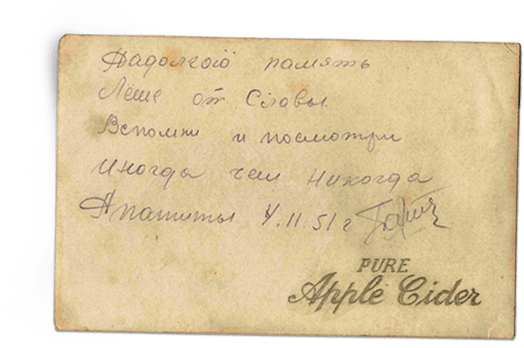 Надолгою память
Лёше от Славы.
Вспомни и посмотри
иногда чем никогда
Апатиты 4.11.51 г
PURE
Apple Cider